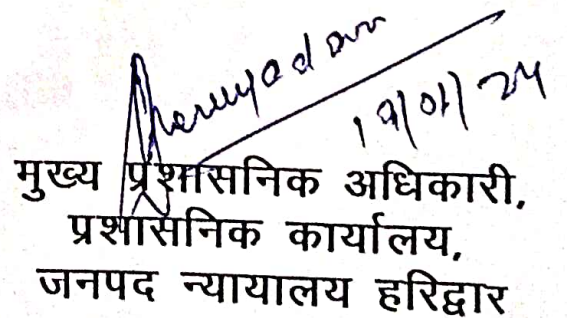 19/01/24
मुख्य प्रशासनिक अधिकारी,
प्रशासनिक कार्यालय,
जनपद न्यायालय हरिद्वार